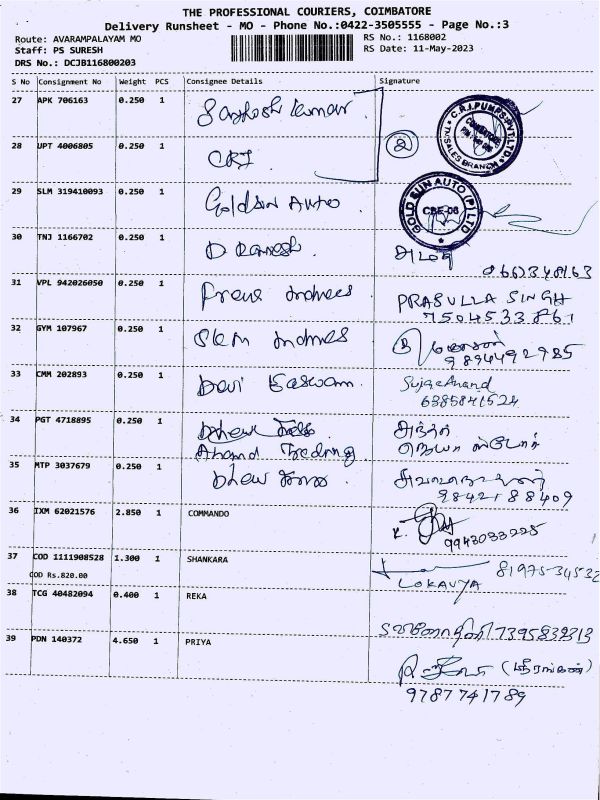 THE PROFESSIONAL COURIERS, COIMBATORE
Delivery Runsheet - MO - Phone No.:0422-3505555 - Page No.:3
Route: AVARAMPALAYAM MO
RS No.: 1168002
Staff: PS SURESH
RS Date: 11-May-2023
DRS No.: DCJB116800203
S No Consignment No Weight PCS Consignee Details Signature
27 APK 706163 0.250 1 Kumar
C.R.I.PUMPS PVT.LTD. COIMBATORE SALES BRANCH
28 UPT 4006805 0.250 1 CRI
29 SLM 319410093 0.250 1 Goldsun Auto
GOLD SUN AUTO (P) LTD CBE-06
30 TNJ 1166702 0.250 1 D Ramesh
31 VPL 942026050 0.250 1 PRASULLA SINGH
7504533861
32 GYM 107967 0.250 1
9894492985
33 CMM 202893 0.250 1 Devi Easwaran
6385841524
34 PGT 4718895 0.250 1
Anand Trading
35 MTP 3037679 0.250 1
9842188409
36 IXM 62021576 2.850 1 COMMANDO
9943033225
37 COD 1111908528 1.300 1 SHANKARA 8197534532
COD Rs.820.00 LOKAVYA
38 TCG 40482094 0.400 1 REKA
7395839313
39 PDN 140372 4.650 1 PRIYA
9787741789